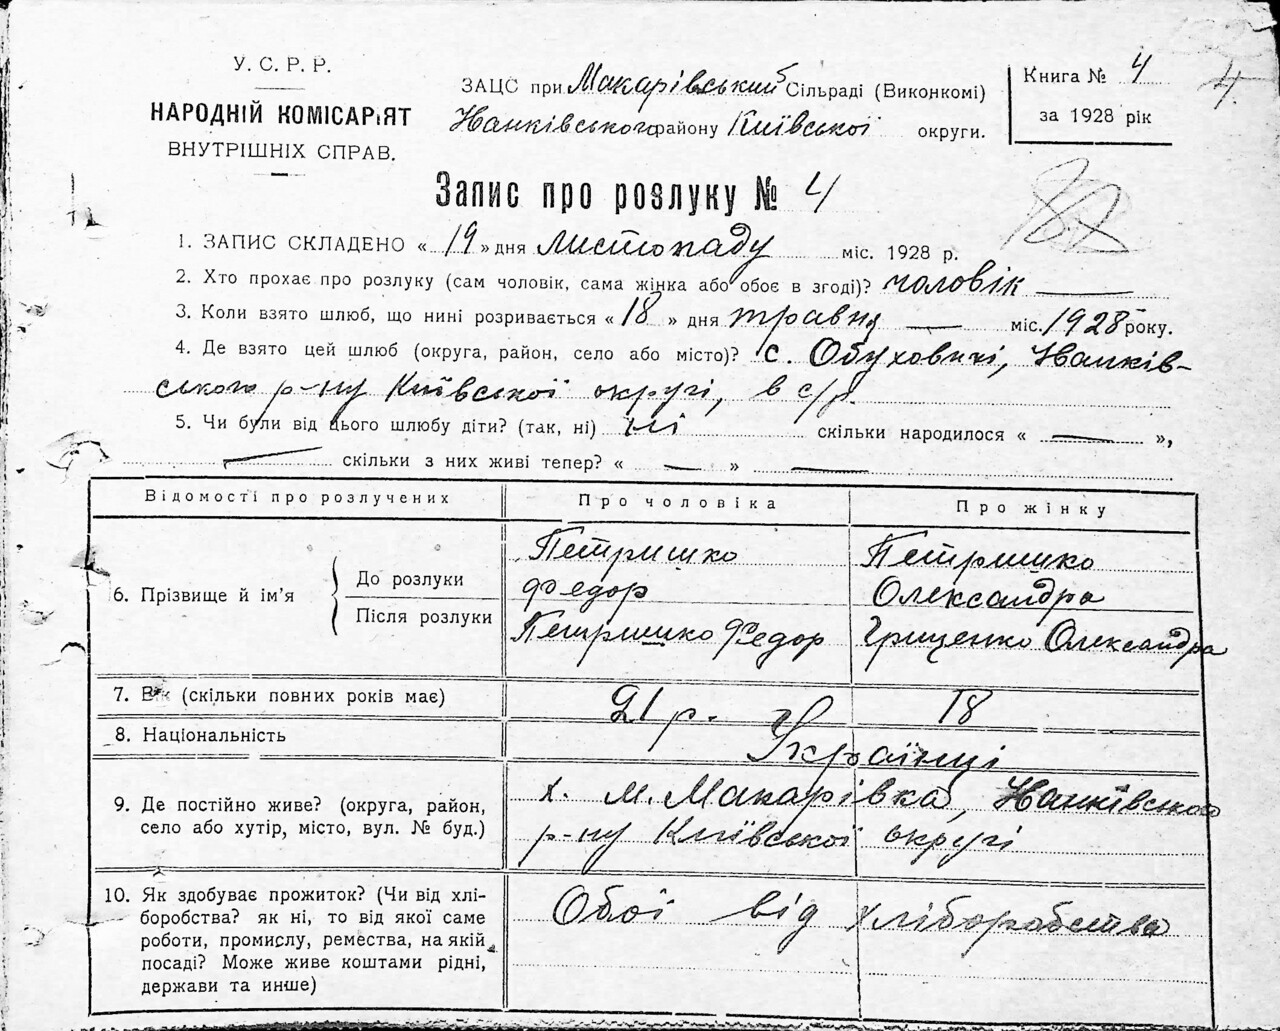 У. С. Р. Р.
НАРОДНІЙ КОМІСАРІЯТ
ВНУТРІШНІХ СПРАВ.
ЗАЦС при Макарівській Сільраді (Виконкомі)
Іванківського району Київської округи.
Книга № 4
за 1928 рік
4
Запис про розлуку № 4
1. ЗАПИС СКЛАДЕНО « 19 » дня листопаду міс. 1928 р.
2. Хто прохає про розлуку (сам чоловік, сама жінка або обоє в згоді)? чоловік —
3. Коли взято шлюб, що нині розривається « 18 » дня травня — міс. 1928 року.
4. Де взято цей шлюб (округа, район, село або місто)? с. Обуховичі, Іванків-
ського р-ну Київської округі, в с/р.
5. Чи були від цього шлюбу діти? (так, ні) ні скільки народилося « — »,
— скільки з них живі тепер? « — » —
Відомості про розлучених Про чоловіка Про жінку
6. Прізвище й ім'я
До розлуки Петришко Федор Петришко Олександра
Після розлуки Петришко Федор Гриценко Олександра
7. Вік (скільки повних років має) 21 р. 18
8. Національність Українці
9. Де постійно живе? (округа, район, село або хутір, місто, вул. № буд.)
х. М. Макарівка, Іванківського
р-ну Київської округі
10. Як здобуває прожиток? (Чи від хлі-
боробства? як ні, то від якої саме
роботи, промислу, ремества, на якій
посаді? Може живе коштами рідні,
держави та инше)
Обоі від хліборобства